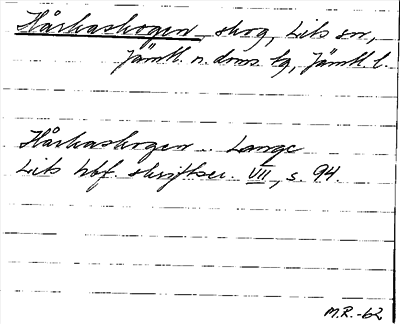 Hårkaskogen, skog, Lits sn,
Jämtl. n. doms. tg, Jämtl. l.
Hårkaskogen. Lange
Lits hbf. skriftser. VII, s. 94.
M.R.-62